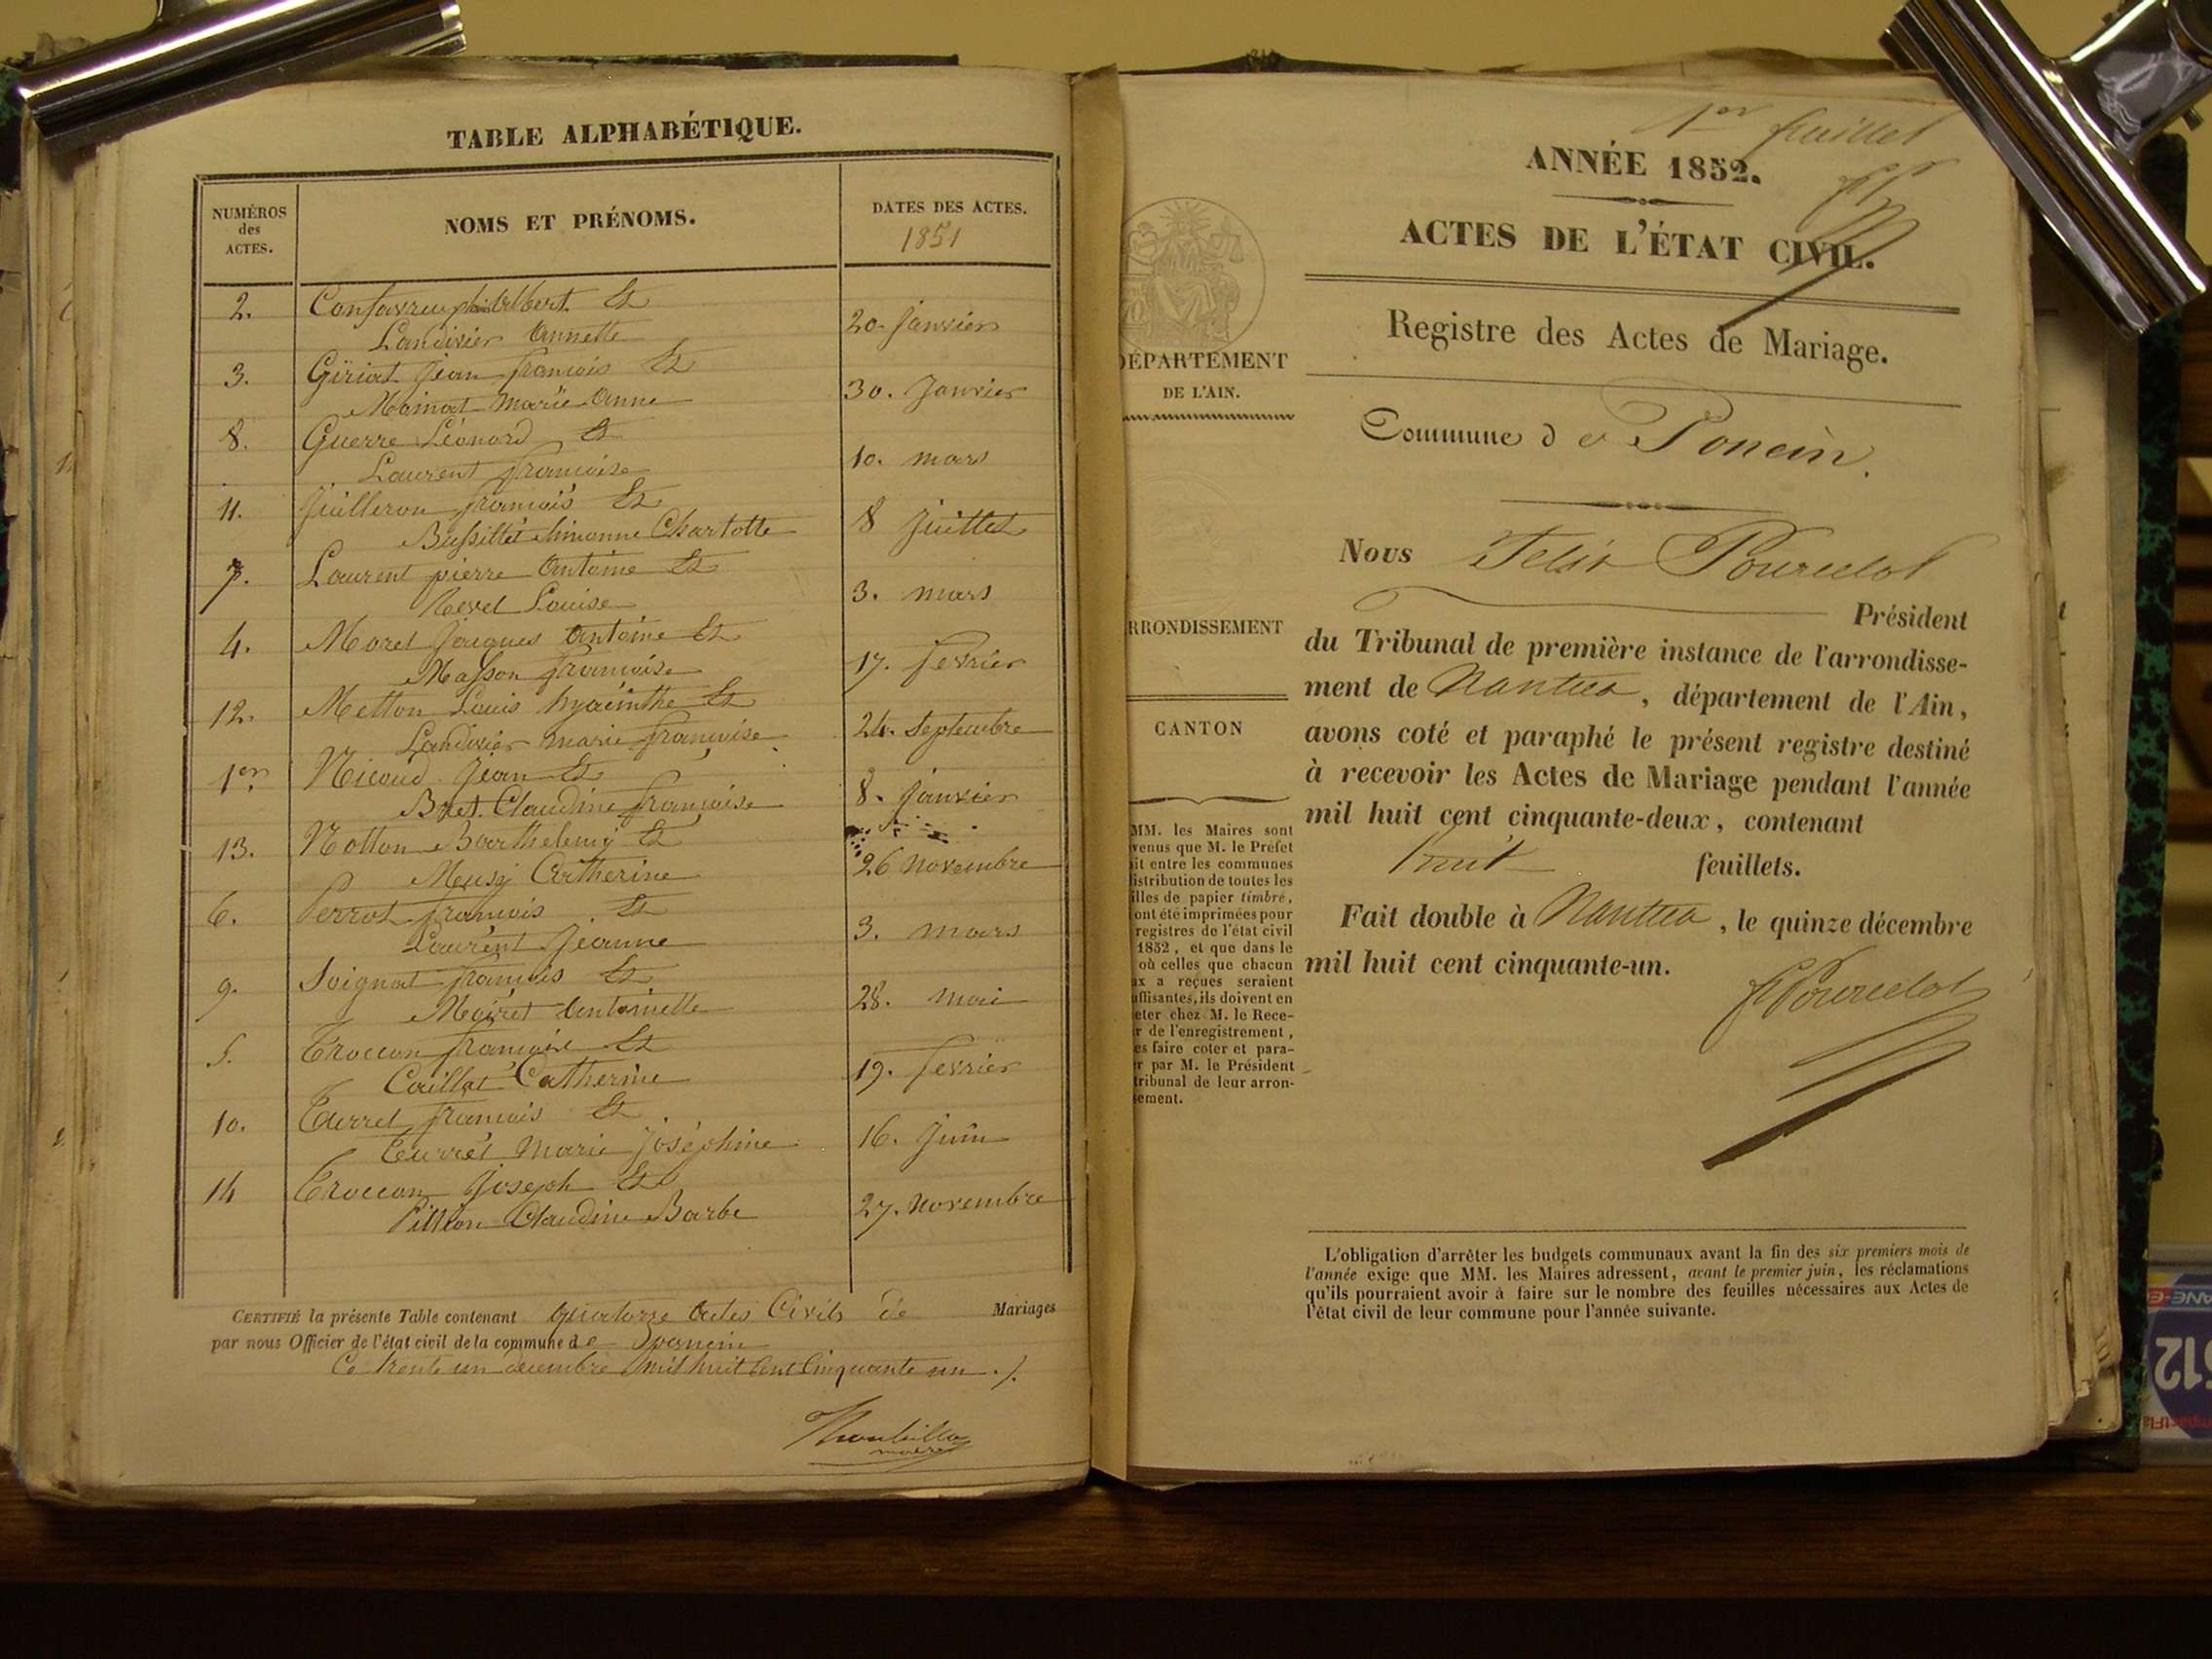 TABLE ALPHABÉTIQUE.
NUMÉROS
des
ACTES.
NOMS ET PRÉNOMS.
DATES DES ACTES.
1851
2. Philibert Et
Landivier Annette 20. Janvier
3. Giriat Jean françois Et
Moinat Marie Anne 30. Janvier
8. Guerre Léonard Et
Laurent françoise 10. mars
11. Juilleron françois Et
Charlotte 8 Juillet
7. Laurent pierre Antoine Et
Revel Louise 3. mars
4. Morel Jacques Antoine Et
Masson françoise 17. fevrier
12. Metton Louis hyacinthe Et
Landivier marie françoise 24. Septembre
1er Nicoud Jean Et
Bret Claudine françoise 8. Janvier
13. Notton Barthelemy Et
Musy Catherine 26 novembre
6. Perrot françois Et
Laurent Jeanne 3. mars
9. Soignat françois Et
Moiret Antoinette 28. mai
5. Troccon françois Et
Caillat Catherine 19. fevrier
10. Turrel françois Et
Turrel Marie Joséphine 16. Juin
14 Troccon Joseph Et
Pillion Claudine Barbe 27. novembre
CERTIFIÉ la présente Table contenant quatorze Actes Civils de Mariages
par nous Officier de l'état civil de la commune de Poncin
Ce trente un decembre mil huit Cent Cinquante un ./.
maire
1er feuillet
ANNÉE 1852.
ACTES DE L'ÉTAT CIVIL.
Registre des Actes de Mariage.
DÉPARTEMENT
DE L'AIN.
Commune de Poncin.
Nous Felix Pourcelot
Président
RRONDISSEMENT
du Tribunal de première instance de l'arrondisse-
ment de Nantua, département de l'Ain,
CANTON
avons coté et paraphé le présent registre destiné
à recevoir les Actes de Mariage pendant l'année
mil huit cent cinquante-deux, contenant
huit feuillets.
Fait double à Nantua, le quinze décembre
mil huit cent cinquante-un.
F Pourcelot
MM. les Maires sont
venus que M. le Préfet
it entre les communes
distribution de toutes les
illes de papier timbré,
ont été imprimées pour
registres de l'état civil
1852, et que dans le
où celles que chacun
ux a reçues seraient
uffisantes, ils doivent en
eter chez M. le Rece-
r de l'enregistrement,
es faire coter et para-
r par M. le Président
tribunal de leur arron-
sement.
L'obligation d'arrêter les budgets communaux avant la fin des six premiers mois de
l'année exige que MM. les Maires adressent, avant le premier juin, les réclamations
qu'ils pourraient avoir à faire sur le nombre des feuilles nécessaires aux Actes de
l'état civil de leur commune pour l'année suivante.
512